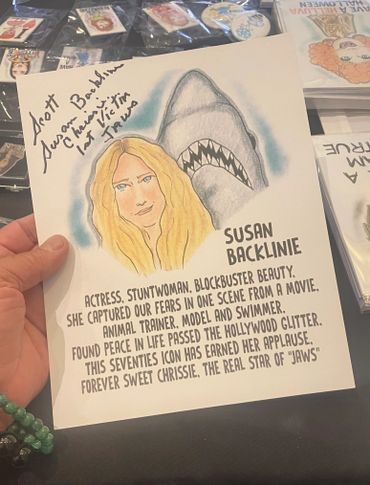 Scott
Susan Backlinie
Chrissie
1st Victim
Jaws
SUSAN
BACKLINIE
ACTRESS, STUNTWOMAN, BLOCKBUSTER BEAUTY.
SHE CAPTURED OUR FEARS IN ONE SCENE FROM A MOVIE.
ANIMAL TRAINER, MODEL AND SWIMMER.
FOUND PEACE IN LIFE PASSED THE HOLLYWOOD GLITTER.
THIS SEVENTIES ICON HAS EARNED HER APPLAUSE,
FOREVER SWEET CHRISSIE, THE REAL STAR OF "JAWS"
HAVE A HELLUVA
HALLOWEEN
AM
TRUE
A